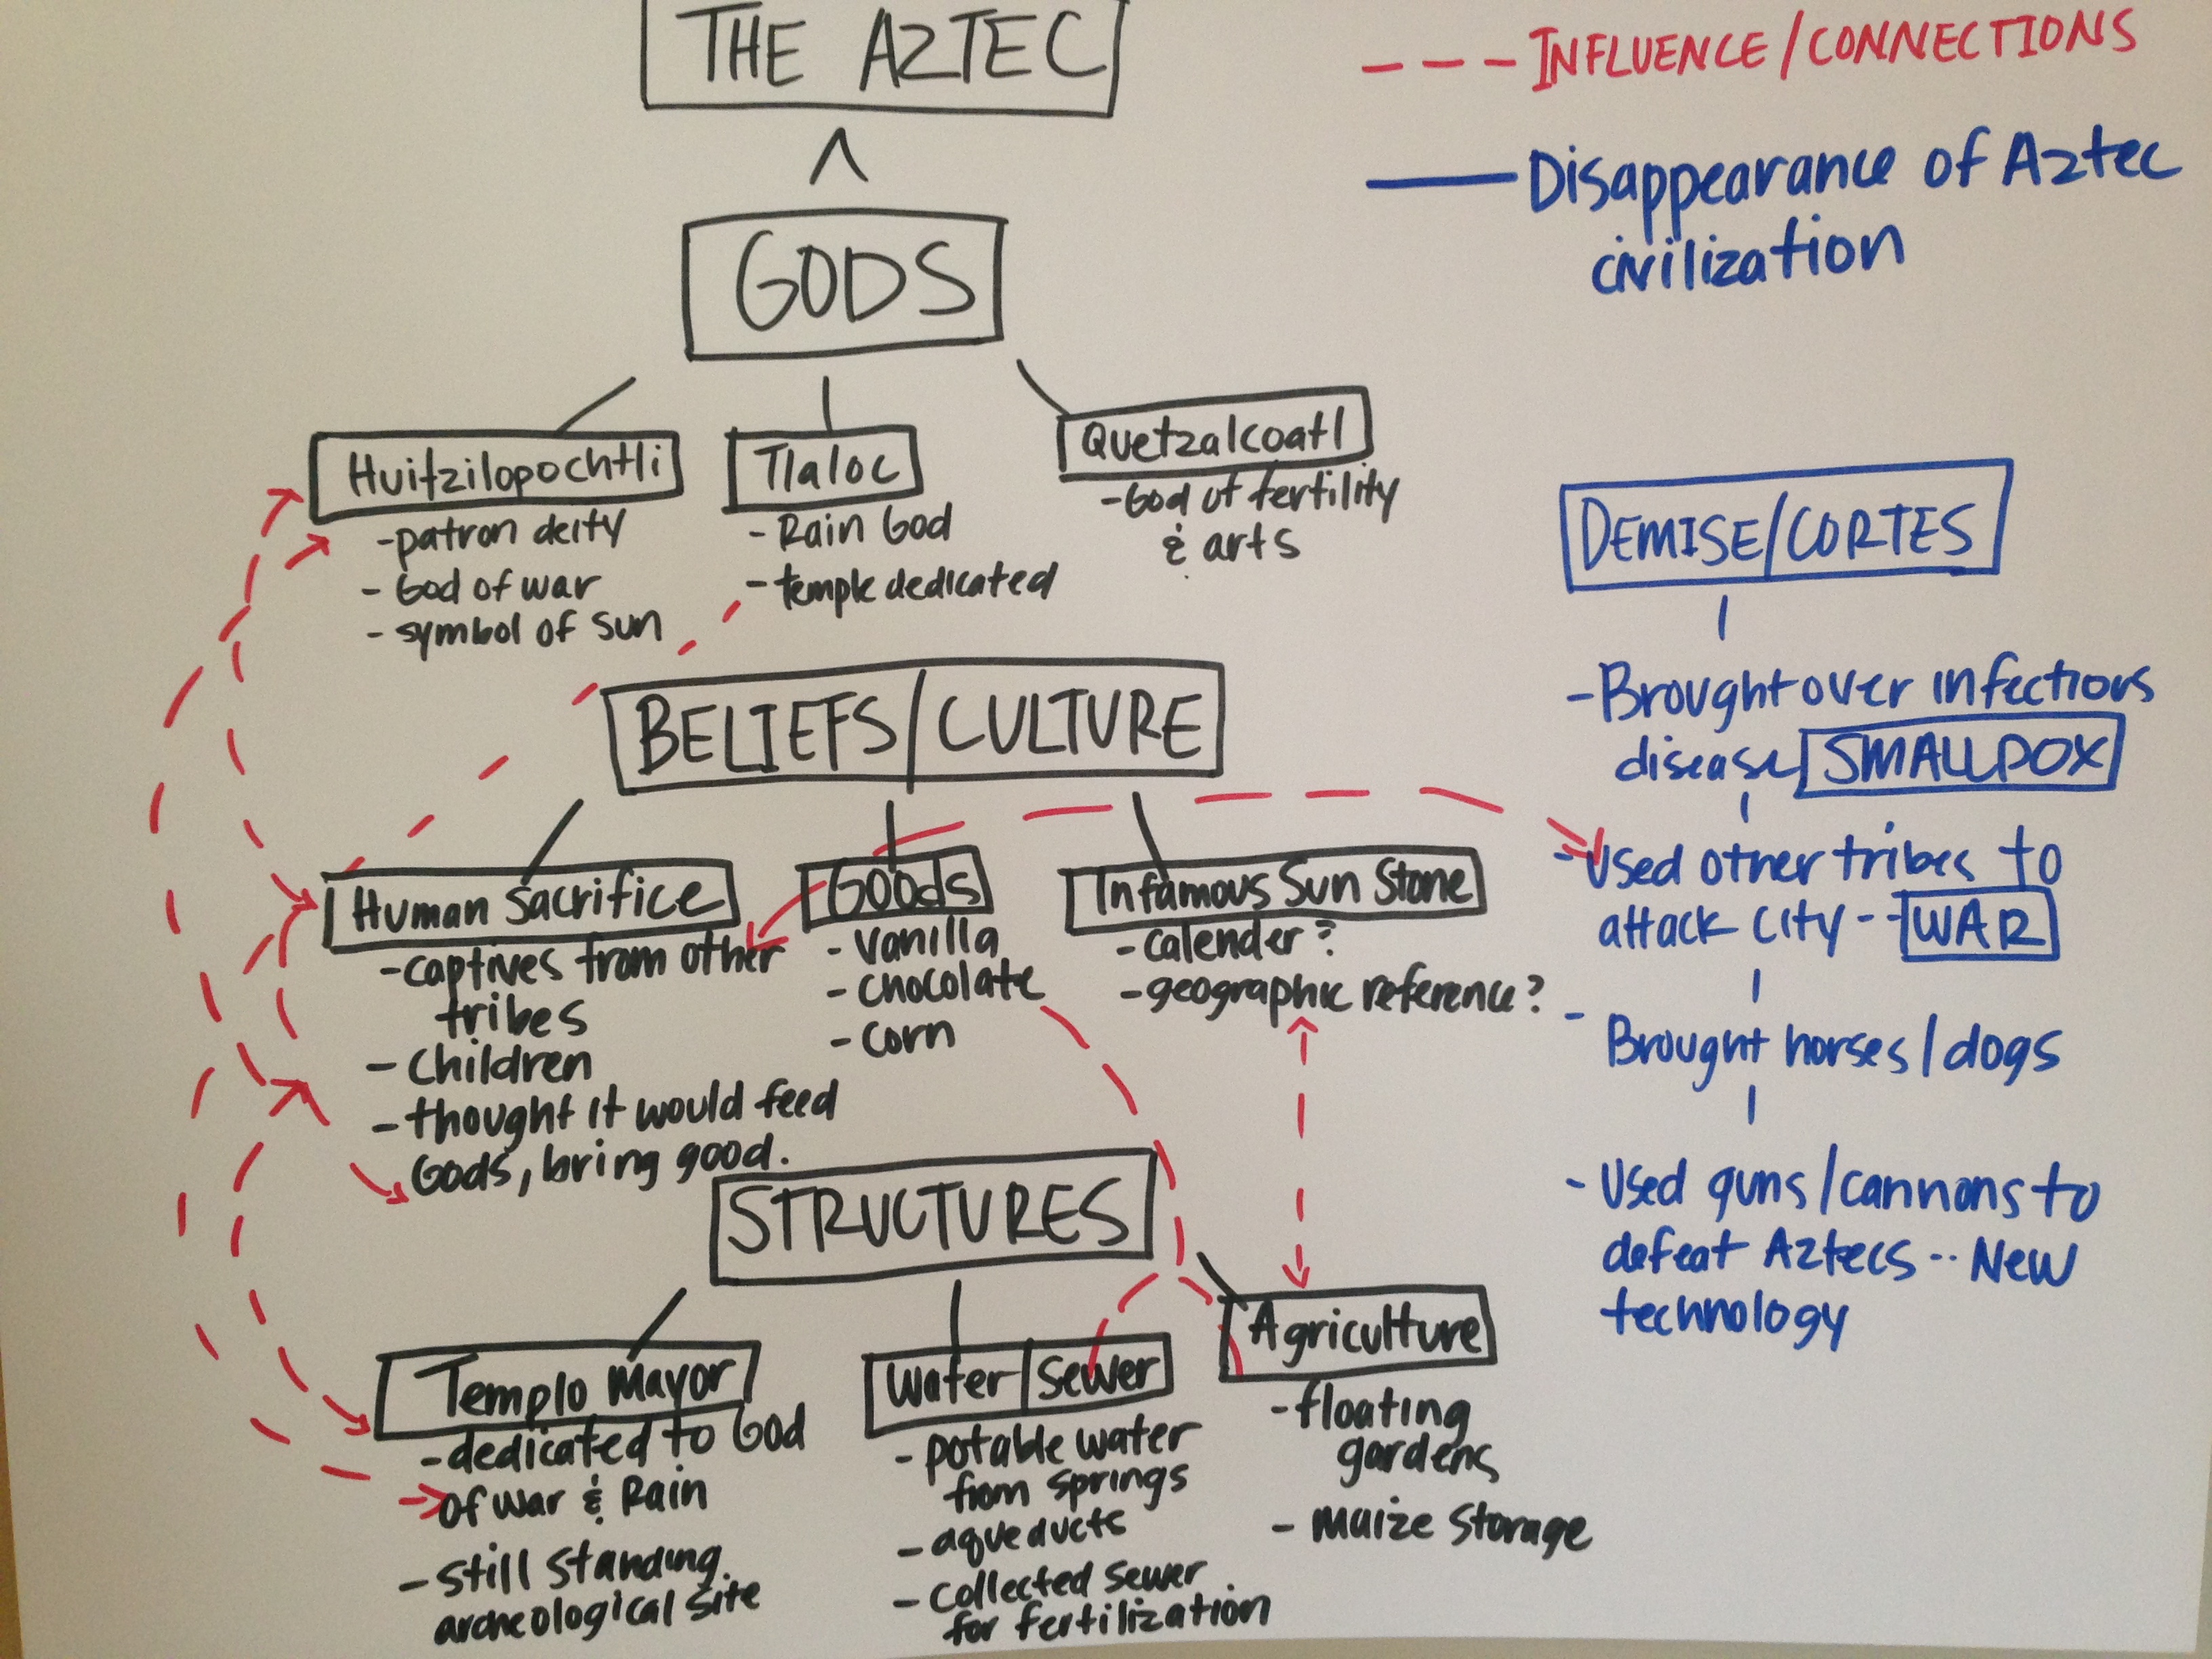 THE AZTEC
--- INFLUENCE/CONNECTIONS
— Disappearance of Aztec
civilization
GODS
Huitzilopochtli
- patron deity
- God of war
- symbol of sun
Tlaloc
- Rain God
- temple dedicated
Quetzalcoatl
- God of fertility
& arts
BELIEFS/CULTURE
Human Sacrifice
- captives from other
tribes
- Children
- thought it would feed
Gods, bring good.
Goods
- vanilla
- chocolate
- corn
Infamous Sun Stone
- calender?
- geographic reference?
STRUCTURES
Templo Mayor
- dedicated to God
of war & Rain
- still standing
archeological site
Water/Sewer
- potable water
from springs
- aqueducts
- collected sewer
for fertilization
Agriculture
- floating
gardens
- maize storage
DEMISE/CORTES
- Brought over infectious
disease/SMALLPOX
- Used other tribes to
attack city -- WAR
- Brought horses/dogs
- Used guns/cannons to
defeat Aztecs .. New
technology